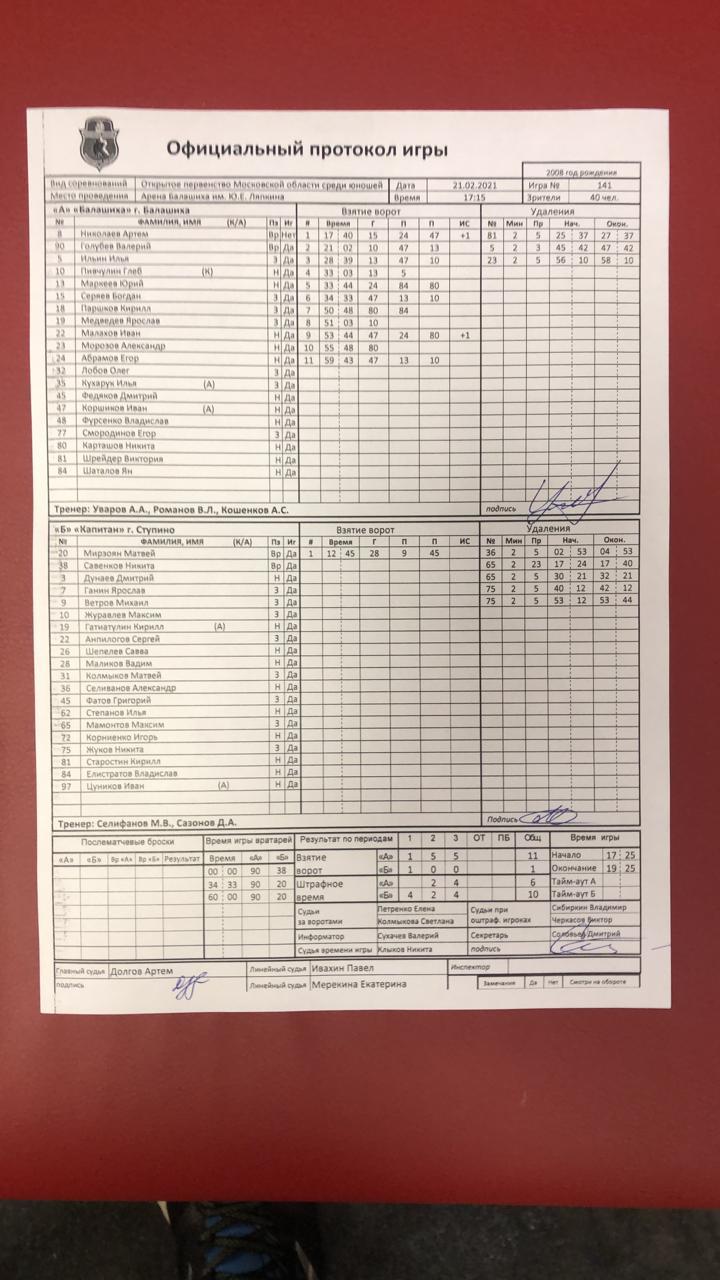 Официальный протокол игры
2008 год рождения
Вид соревнований Открытое первенство Московской области среди юношей Дата 21.02.2021 Игра № 141
Место проведения Арена Балашиха им. Ю.Е. Ляпкина Время 17:15 Зрители 40 чел.
«А» «Балашиха» г. Балашиха Взятие ворот Удаления
№ ФАМИЛИЯ, ИМЯ (К/А) Пз Иг # Время Г П П ИС № Мин Пр Нач. Окон.
8 Николаев Артем Вр Нет 1 17 40 15 24 47 +1 81 2 5 25 37 27 37
90 Голубев Валерий Вр Да 2 21 02 10 47 13 5 2 3 45 42 47 42
5 Ильин Илья З Да 3 28 39 13 47 10 23 2 5 56 10 58 10
10 Пивчулин Глеб (К) Н Да 4 33 03 13 5
13 Маркеев Юрий Н Да 5 33 44 24 84 80
15 Серяев Богдан З Да 6 34 33 47 13 10
18 Паршков Кирилл З Да 7 50 48 80 84
19 Медведев Ярослав З Да 8 51 03 10
22 Малахов Иван Н Да 9 53 44 47 24 80 +1
23 Морозов Александр Н Да 10 55 48 80
24 Абрамов Егор Н Да 11 59 43 47 13 10
32 Лобов Олег З Да
35 Кухарук Илья (А) З Да
45 Федяков Дмитрий Н Да
47 Коршиков Иван (А) Н Да
48 Фурсенко Владислав Н Да
77 Смородинов Егор З Да
80 Карташов Никита Н Да
81 Шрейдер Виктория Н Да
84 Шаталов Ян Н Да
Тренер: Уваров А.А., Романов В.Л., Кошенков А.С. подпись
«Б» «Капитан» г. Ступино Взятие ворот Удаления
№ ФАМИЛИЯ, ИМЯ (К/А) Пз Иг # Время Г П П ИС № Мин Пр Нач. Окон.
20 Мирзоян Матвей Вр Да 1 12 45 28 9 45 36 2 5 02 53 04 53
38 Савенков Никита Вр Да 65 2 23 17 24 17 40
3 Дунаев Дмитрий Н Да 65 2 5 30 21 32 21
7 Ганин Ярослав З Да 75 2 5 40 12 42 12
9 Ветров Михаил З Да 75 2 5 53 12 53 44
10 Журавлев Максим З Да
19 Гатиатулин Кирилл (А) Н Да
22 Анпилогов Сергей З Да
26 Шепелев Савва Н Да
28 Маликов Вадим Н Да
31 Колмыков Матвей З Да
36 Селиванов Александр Н Да
45 Фатов Григорий З Да
62 Степанов Илья Н Да
65 Мамонтов Максим З Да
72 Корниенко Игорь Н Да
75 Жуков Никита З Да
81 Старостин Кирилл Н Да
84 Елистратов Владислав Н Да
97 Цуников Иван (А) Н Да
Тренер: Селифанов М.В., Сазонов Д.А. Подпись
Послематчевые броски Время игры вратарей Результат по периодам 1 2 3 ОТ ПБ Общ Время игры
«А» «Б» Вр «А» Вр «Б» Результат Время «А» «Б» Взятие ворот «А» 1 5 5 11 Начало 17 25
00 00 90 38 «Б» 1 0 0 1 Окончание 19 25
34 33 90 20 Штрафное время «А» 2 4 6 Тайм-аут А
60 00 90 20 «Б» 4 2 4 10 Тайм-аут Б
Судьи за воротами Петренко Елена Судьи при оштраф. игроках Сибиркин Владимир
Колмыкова Светлана Черкасов Виктор
Информатор Сухачев Валерий Секретарь Соловьев Дмитрий
Судья времени игры Клыков Никита подпись
Главный судья Долгов Артем Линейный судья Ивахин Павел Инспектор
подпись Линейный судья Мерекина Екатерина Замечания Да Нет Смотри на обороте